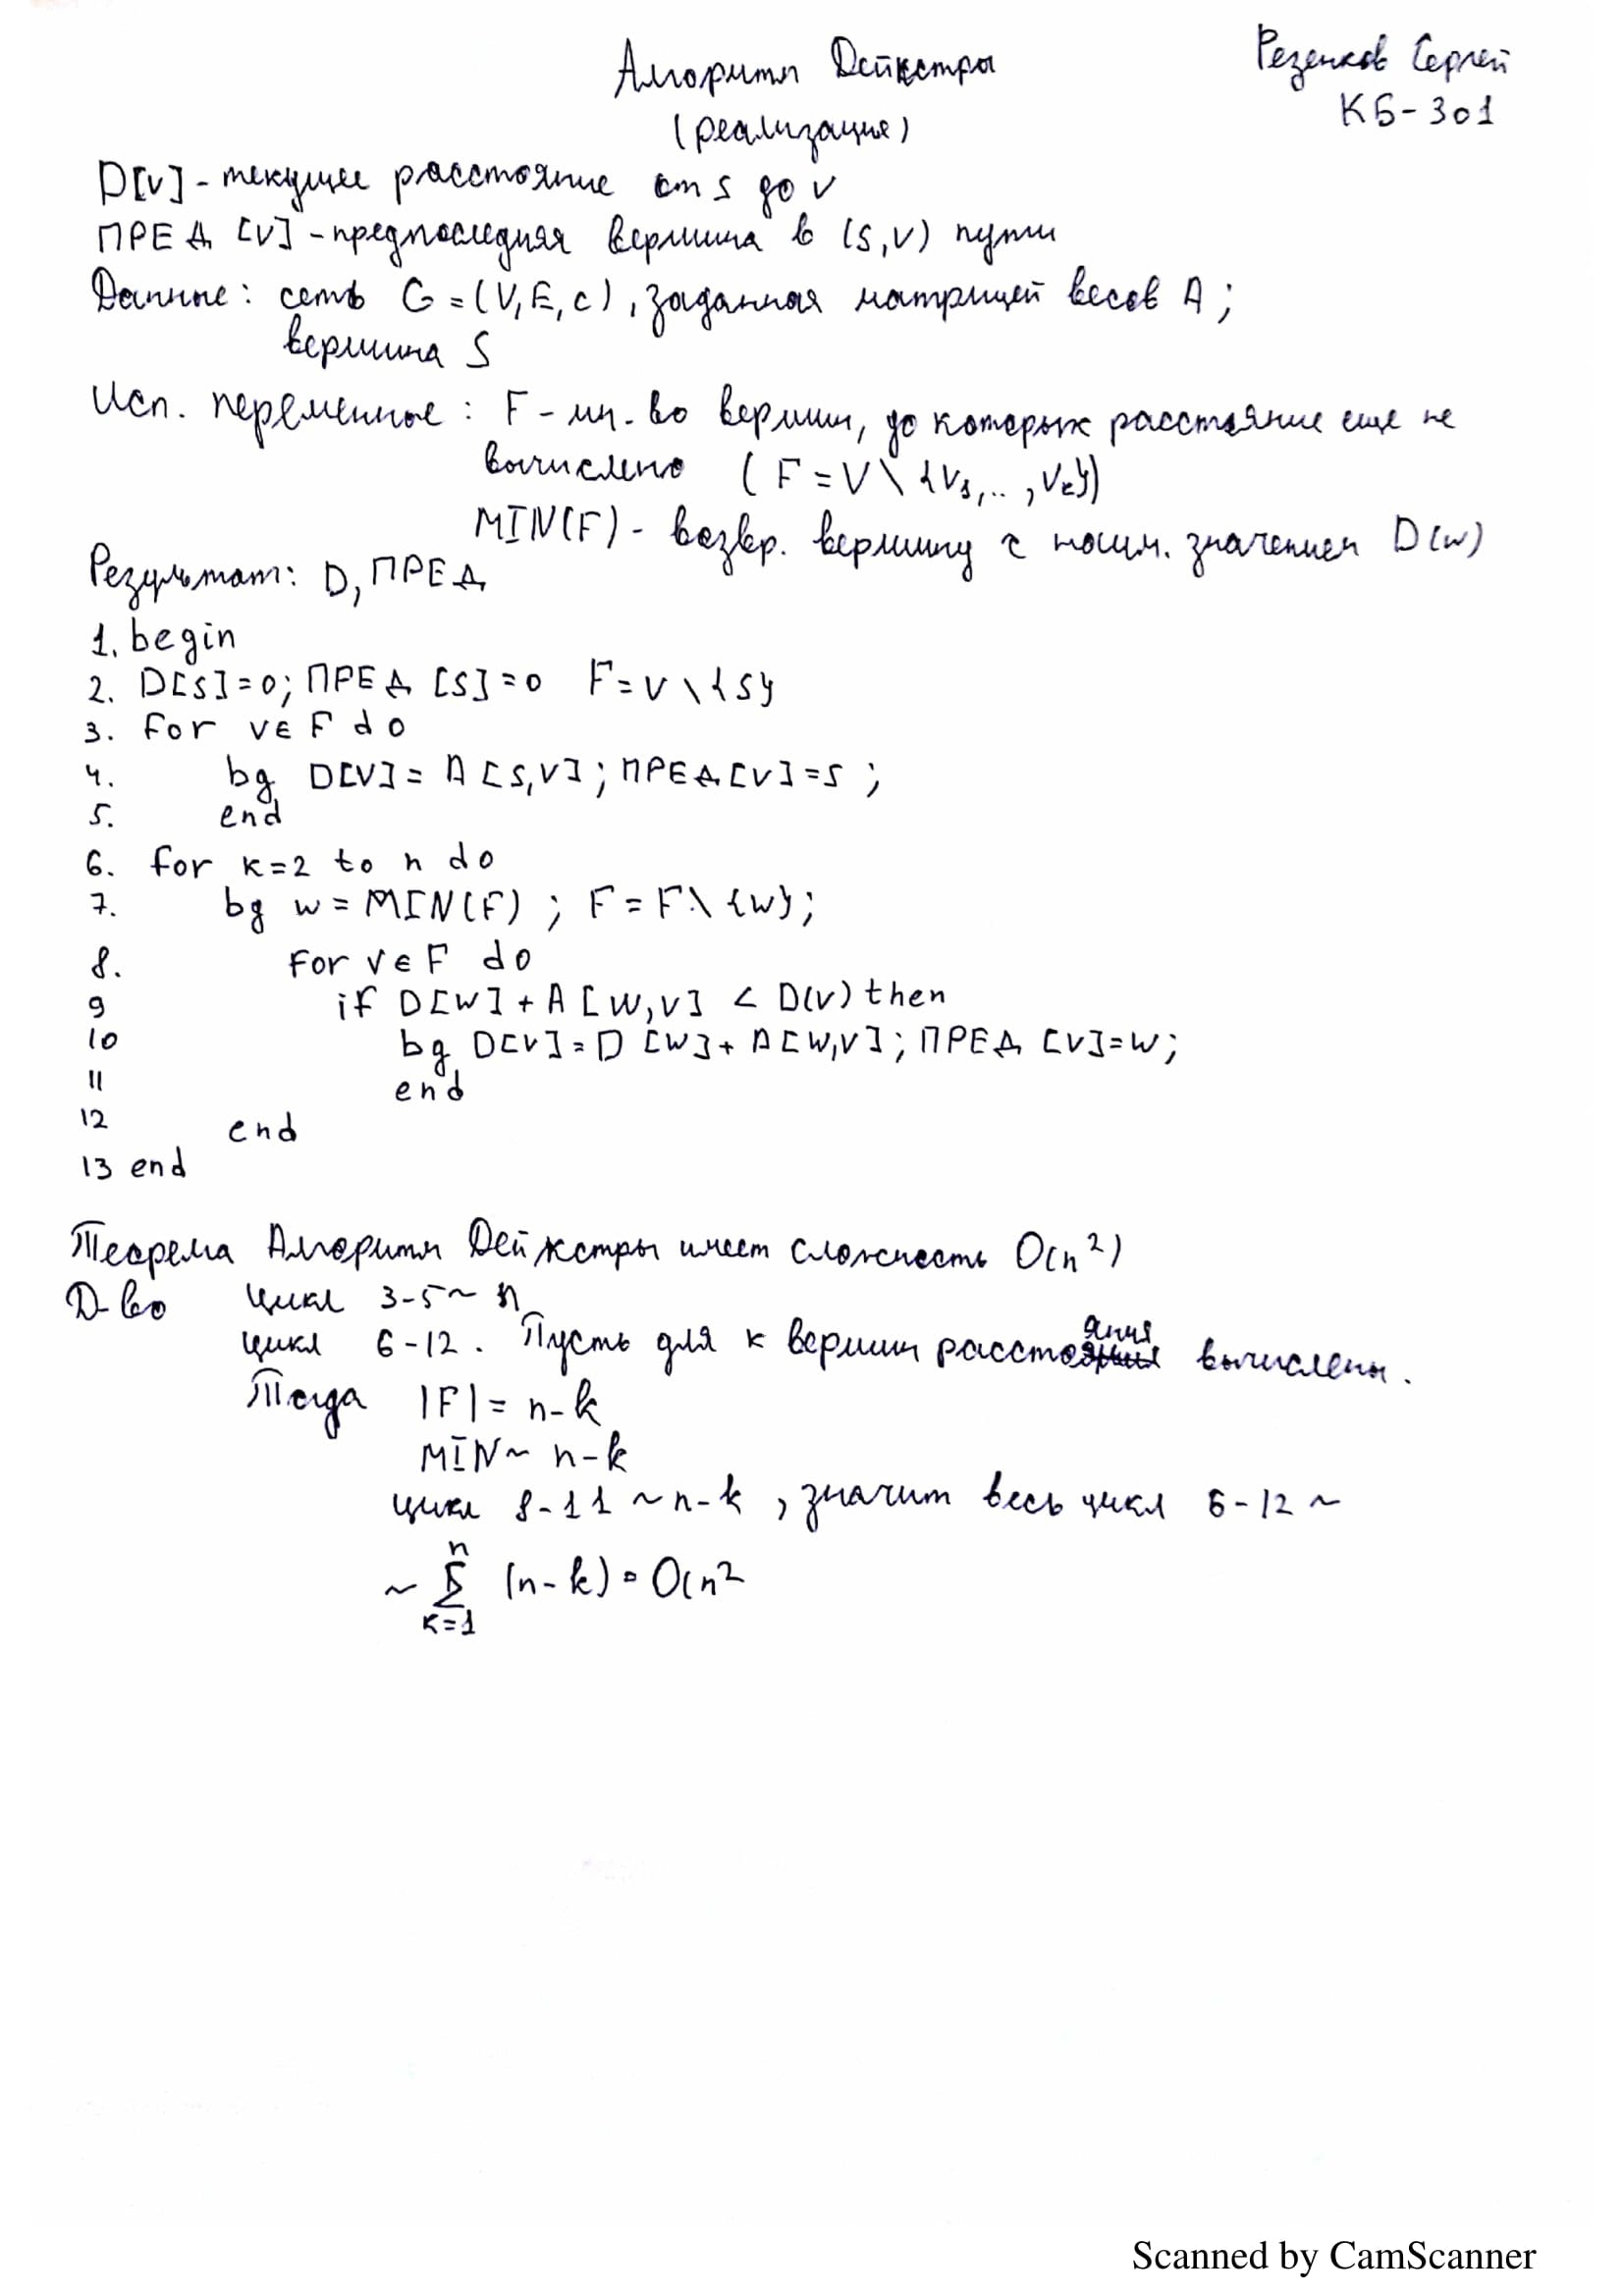 Алгоритм Дейкстры
Резенков Сергей
КБ-301
(реализация)
D[v] - текущее расстояние от s до v
ПРЕД [v] - предпоследняя вершина в (s,v) пути
Данные: сеть G = (V, E, c), заданная матрицей весов A;
вершина S
Исп. переменные: F - мн-во вершин, до которых расстояние еще не
вычислено (F = V \ {v₁,..,vₖ})
MIN(F) - возвр. вершину с наим. значением D(w)
Результат: D, ПРЕД
1. begin
2. D[s]=0; ПРЕД [s]=0 F=V \ {s}
3. for v∈F do
4. bg D[v]= A [s,v]; ПРЕД[v]=s;
5. end
6. for k=2 to n do
7. bg w = MIN(F); F = F \ {w};
8. for v∈F do
9 if D[w] + A [w,v] < D(v) then
10 bg D[v]=D [w]+ A[w,v]; ПРЕД [v]=w;
11 end
12 end
13 end
Теорема Алгоритм Дейкстры имеет сложность O(n²)
Д-во Цикл 3-5 ~ n
цикл 6-12. Пусть для k вершин расстояния вычислены.
Тогда |F| = n-k
MIN ~ n-k
цикл 8-11 ~ n-k, значит весь цикл 6-12 ~
~ ∑ₖ₌₁ⁿ (n-k) = O(n²
Scanned by CamScanner